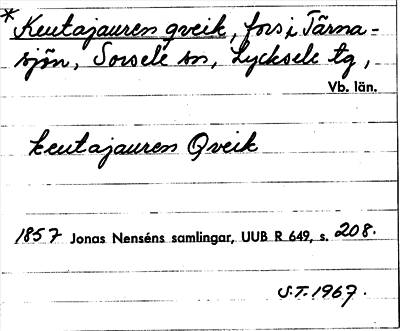 *Keutajauren qveik, fors i Tärna-
sjön, Sorsele sn, Lycksele tg,
Vb. län.
keutajauren Qveik
1857 Jonas Nenséns samlingar, UUB R 649, s. 208.
S.T. 1967.